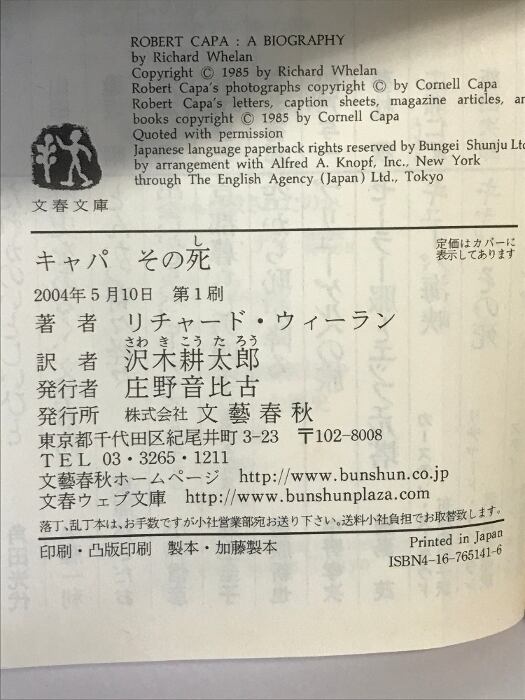 ROBERT CAPA : A BIOGRAPHY
by Richard Whelan
Copyright © 1985 by Richard Whelan
Robert Capa's photographs copyright © by Cornell Capa
Robert Capa's letters, caption sheets, magazine articles, an
books copyright © 1985 by Cornell Capa
Quoted with permission
Japanese language paperback rights reserved by Bungei Shunju Ltd
by arrangement with Alfred A. Knopf, Inc., New York
through The English Agency (Japan) Ltd., Tokyo
文春文庫
定価はカバーに
表示してあります
し
キャパ その死
2004年5月10日 第1刷
著者 リチャード・ウィーラン
さわ き こう た ろう
訳者 沢木耕太郎
発行者 庄野音比古
発行所 株式会社 文藝春秋
東京都千代田区紀尾井町3-23 〒102-8008
TEL 03・3265・1211
文藝春秋ホームページ http://www.bunshun.co.jp
文春ウェブ文庫 http://www.bunshunplaza.com
落丁、乱丁本は、お手数ですが小社営業部宛お送り下さい。送料小社負担でお取替致します。
印刷・凸版印刷 製本・加藤製本
Printed in Japan
ISBN4-16-765141-6